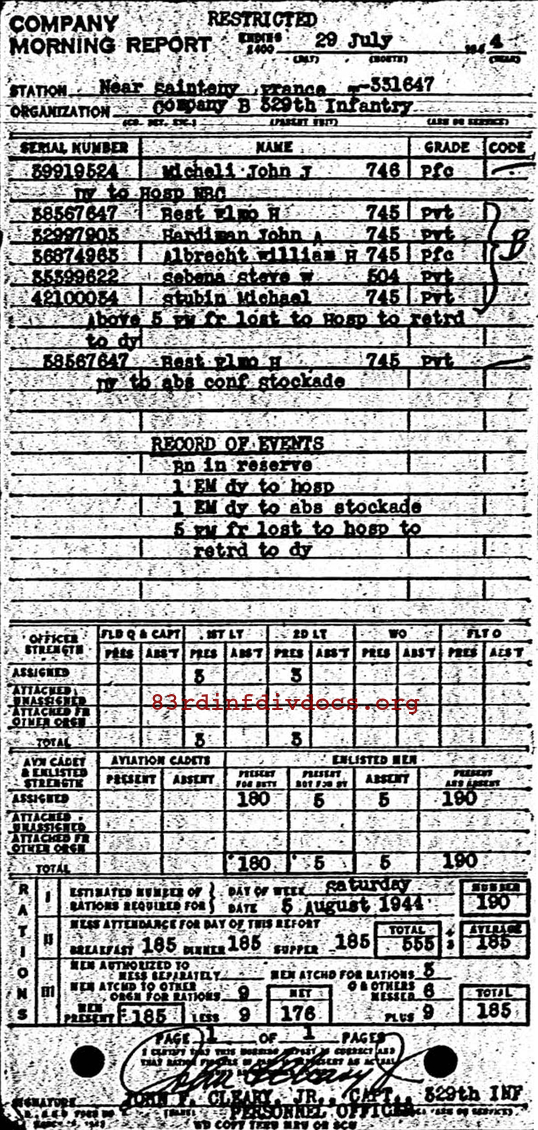 RESTRICTED
COMPANY
MORNING REPORT ENDING 2400 29 July 194 4
(DAY) (MONTH) (YEAR)
STATION Near Sainteny France T-331647
ORGANIZATION Company B 329th Infantry
(CO. DET. ETC.) (PARENT UNIT) (ARM OR SERVICE)
SERIAL NUMBER NAME GRADE CODE
39919524 Micheli John J 746 Pfc
Dy to Hosp NBC
38567647 Best Elmo H 745 Pvt
32997903 Hardiman John A 745 Pvt B
36874963 Albrecht William H 745 Pfc
35399622 Sebena Steve W 504 Pvt
42100034 Stubin Michael 745 Pvt
Above 5 EM fr lost to Hosp to retrd
to dy
38567647 Best Elmo H 745 Pvt
Dy to abs conf stockade
RECORD OF EVENTS
Bn in reserve
1 EM dy to hosp
1 EM dy to abs stockade
5 EM fr lost to hosp to
retrd to dy
OFFICER STRENGTH FLD O & CAPT 1ST LT 2D LT WO FLT O
PRES ABS'T PRES ABS'T PRES ABS'T PRES ABS'T PRES ABS'T
ASSIGNED 3 3
ATTACHED UNASSIGNED
ATTACHED FR OTHER ORGN
83rdinfdivdocs.org
TOTAL 3 3
AVN CADET & ENLISTED STRENGTH AVIATION CADETS ENLISTED MEN
PRESENT ABSENT PRESENT FOR DUTY PRESENT NOT FOR DY ABSENT PRESENT AND ABSENT
ASSIGNED 180 5 5 190
ATTACHED UNASSIGNED
ATTACHED FR OTHER ORGN
TOTAL 180 5 5 190
RATIONS
I ESTIMATED NUMBER OF RATIONS REQUIRED FOR DAY OF WEEK Saturday NUMBER
DATE 5 August 1944 190
II MESS ATTENDANCE FOR DAY OF THIS REPORT TOTAL ÷ 3 AVERAGE
BREAKFAST 185 DINNER 185 SUPPER 185 555 185
III MEN AUTHORIZED TO MESS SEPARATELY MEN ATCHD FOR RATIONS 3
MEN ATCHD TO OTHER ORGN FOR RATIONS 9 NET O & OTHERS MESSED 6 TOTAL
MEN PRESENT 185 LESS 9 176 PLUS 9 185
PAGE 1 OF 1 PAGES
I CERTIFY THAT THIS MORNING REPORT IS CORRECT AND
SIGNATURE JOHN F. CLEARY, JR., CAPT., 329th INF
PERSONNEL OFFICER